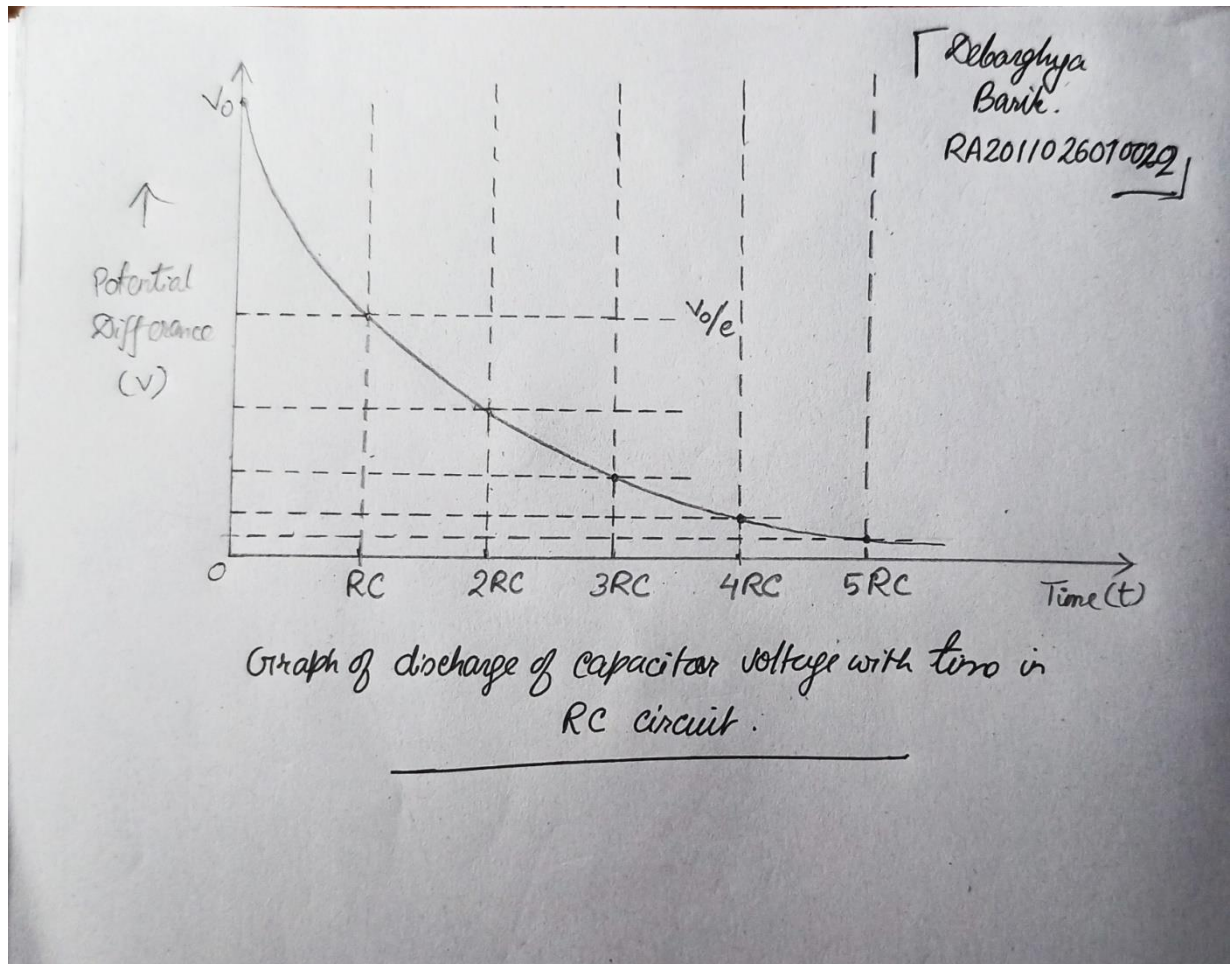 Debarghya
Barik.
RA2011026010022
V0
↑
Potential
Differance
(V)
V0/e
0
RC
2RC
3RC
4RC
5RC
Time (t)
Graph of discharge of capacitor voltage with time in
RC circuit.